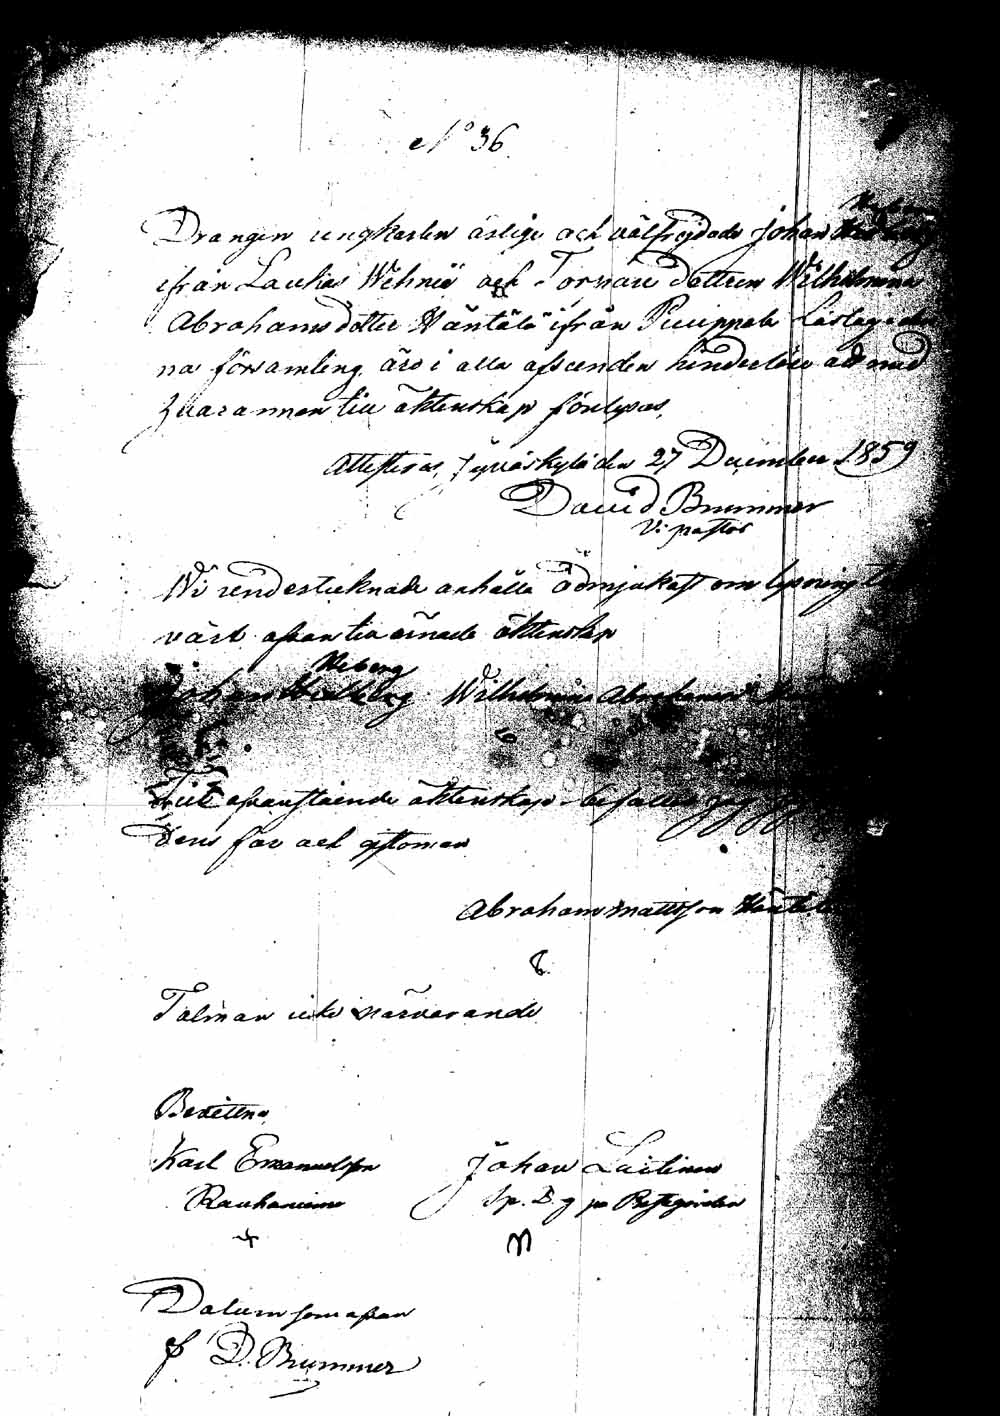 No 36
Drangen ungkarlen ärlige och välfrejdade Johan
ifrån Laukas Wehniä och Tornaredottren Wilhelmina
Abrahamsdotter Häntälä ifrån Puuppola Lästag
na församling, äro i alla afseenden hinderlöse att med
hvarannan till äktenskap förlysas,
Attesteras, Jyväskylä den 27 December 1859
David Brummer
V: pastor
Wi undertecknade anhålla ödmjukast om lysning t
vårt ofvan till ärnade äktenskap
Neberg
Johan Wilhelmina Abrahams
Till ofvanstående äktenskap
dens far och giftoman
Abraham Mattsson Häntälä
Talman icke närvarande
Bevittna,
Karl Emanuelsson Johan Laitinen
Rauhaniemi på Prestgården
Datum som ofvan
D. Brummer